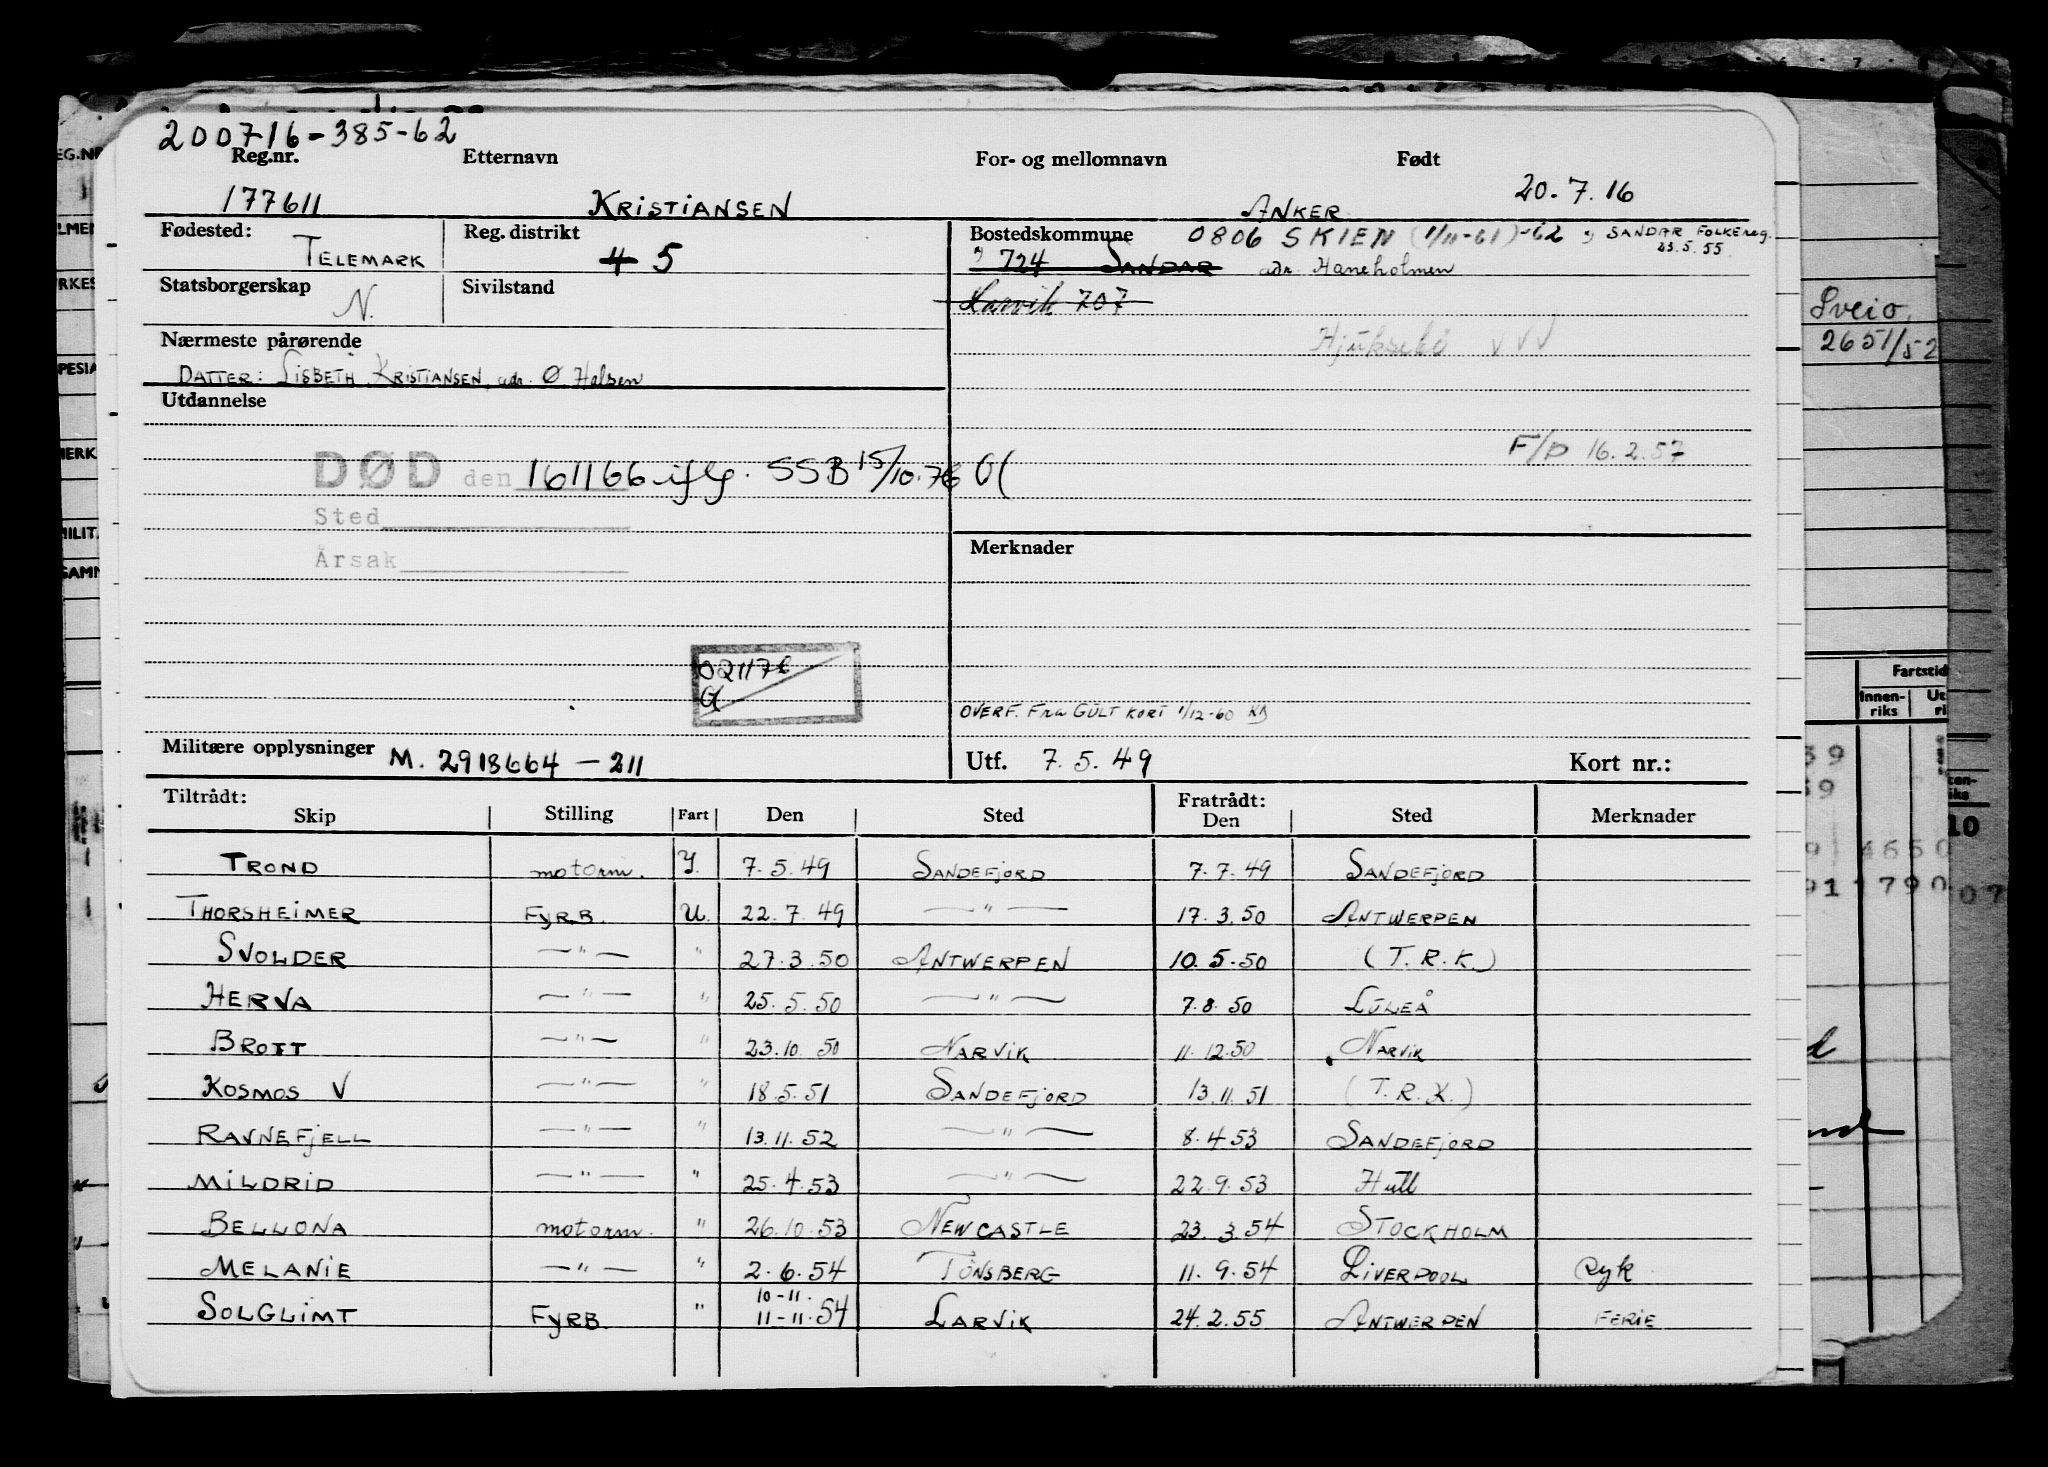 200716-385-62
Reg.nr. Etternavn For- og mellomnavn Født
177611 KRISTIANSEN ANKER 20.7.16
Fødested: Reg. distrikt Bostedskommune 0806 SKIEN (1/11-61)-62 SANDAR FOLKEREG.
TELEMARK 4 5 724 SANDAR adr. Haneholmen 23.5.55
Statsborgerskap Sivilstand Larvik 707
N.
Nærmeste pårørende Hjuksebø VVV
DATTER: LISBETH KRISTIANSEN, adr. Ø Halsen
Utdannelse
F/D 16.2.57
DØD den 161166 iflg. SSB 15/10.76
Sted
Årsak
Merknader
021176
OVERF. FRA GULT KORT 1/12-60
Militære opplysninger M. 2918664-211 Utf. 7.5.49 Kort nr.:
Tiltrådt: Fratrådt:
Skip Stilling Fart Den Sted Den Sted Merknader
TROND motorm. Y. 7.5.49 SANDEFJORD 7.7.49 SANDEFJORD
THORSHEIMER FYRB. U. 22.7.49 —"— 17.3.50 ANTWERPEN
SVOLDER —"— " 27.3.50 ANTWERPEN 10.5.50 (T.R.K.)
HERVA —"— " 25.5.50 —"— 7.8.50 LULEÅ
BROTT —"— " 23.10.50 NARVIK 11.12.50 NARVIK
KOSMOS V —"— " 18.5.51 SANDEFJORD 13.11.51 (T.R.K.)
RAVNEFJELL —"— " 13.11.52 —"— 8.4.53 SANDEFJORD
MILDRID —"— " 25.4.53 —"— 22.9.53 Hull
BELLONA motorm. " 26.10.53 NEWCASTLE 23.3.54 STOCKHOLM
MELANIE —"— " 2.6.54 TØNSBERG 11.9.54 LIVERPOOL Syk
10-11.
SOLGLIMT FYRB. " 11-11.54 LARVIK 24.2.55 ANTWERPEN FERIE
Sveio
2651/52
Fartstid
Innen-
riks